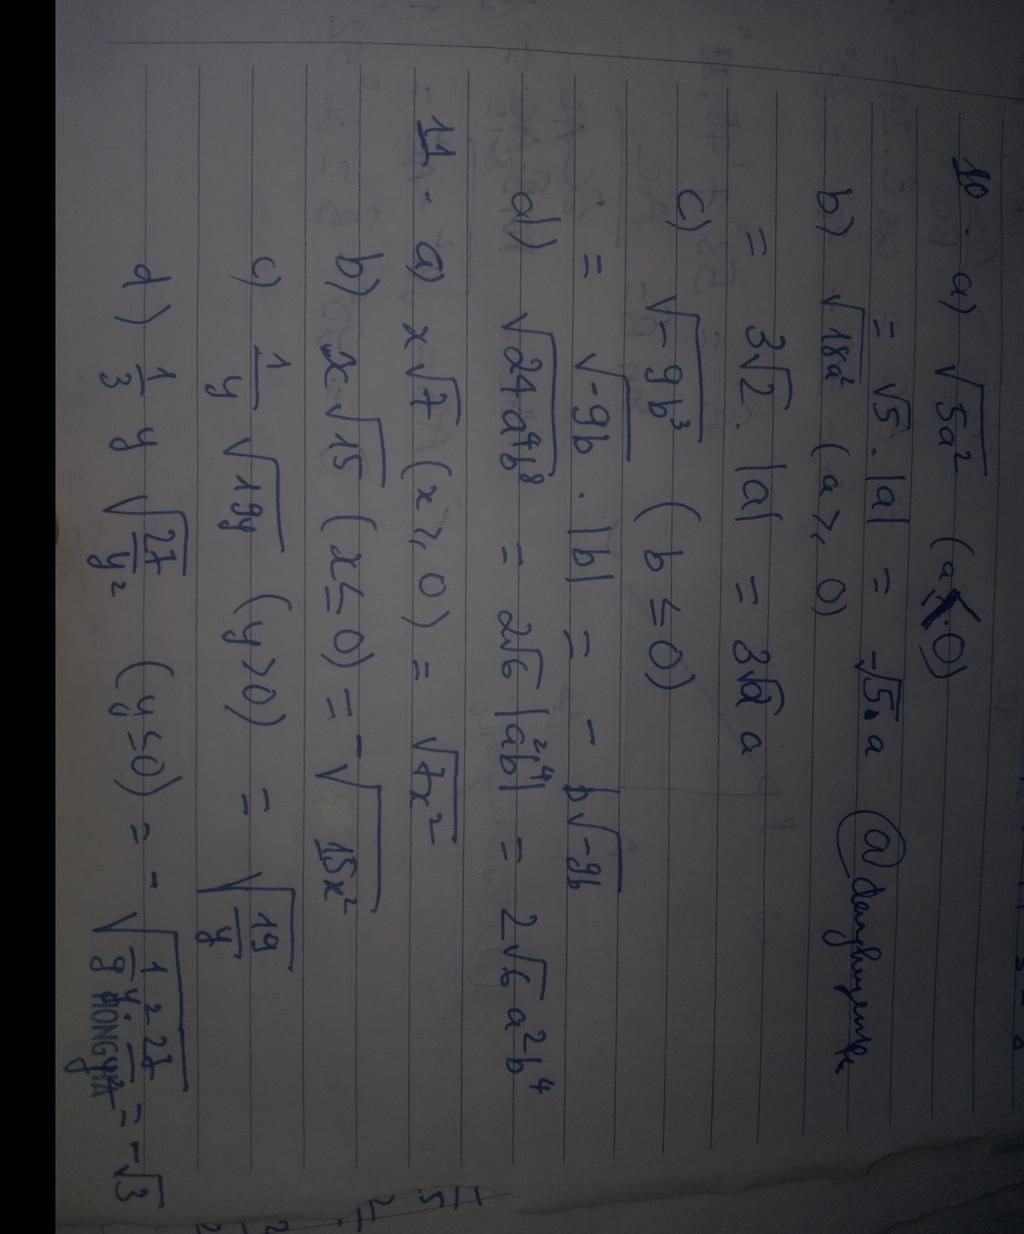 10. a) √5a² (a ≤ 0)
= √5 . |a| = -√5 . a @danghuyenlee
b) √18a² (a ⩾ 0)
= 3√2 . |a| = 3√2 a
c) √-9b³ (b ≤ 0)
= √-9b . |b| = - b√-9b
d) √24a⁴b⁸ = 2√6 |a²b⁴| = 2√6 a²b⁴
11. a) x√7 (x ⩾ 0) = √7x²
b) x√15 (x ≤ 0) = -√15x²
c) 1/y √19y (y > 0) = √19/y
d) 1/3 y √27/y² (y ≤ 0) = - √1/9 y² . 27/y² = -√3
HONG HA